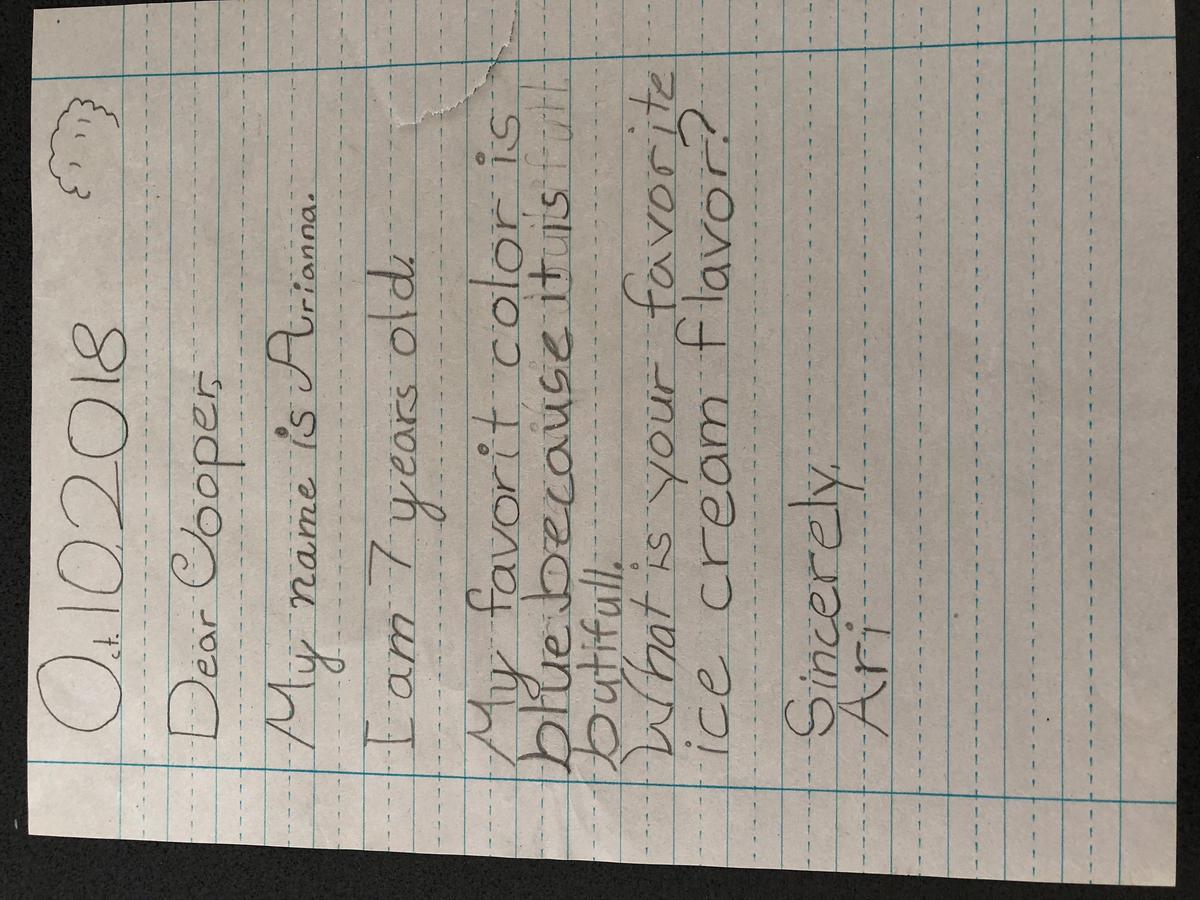 Oct. 10, 2018
Dear Cooper,
My name is Arianna.
I am 7 years old.
My favorit color is
blue because it is
butifull.
What is your favorite
ice cream flavor?
Sincerely,
Ari